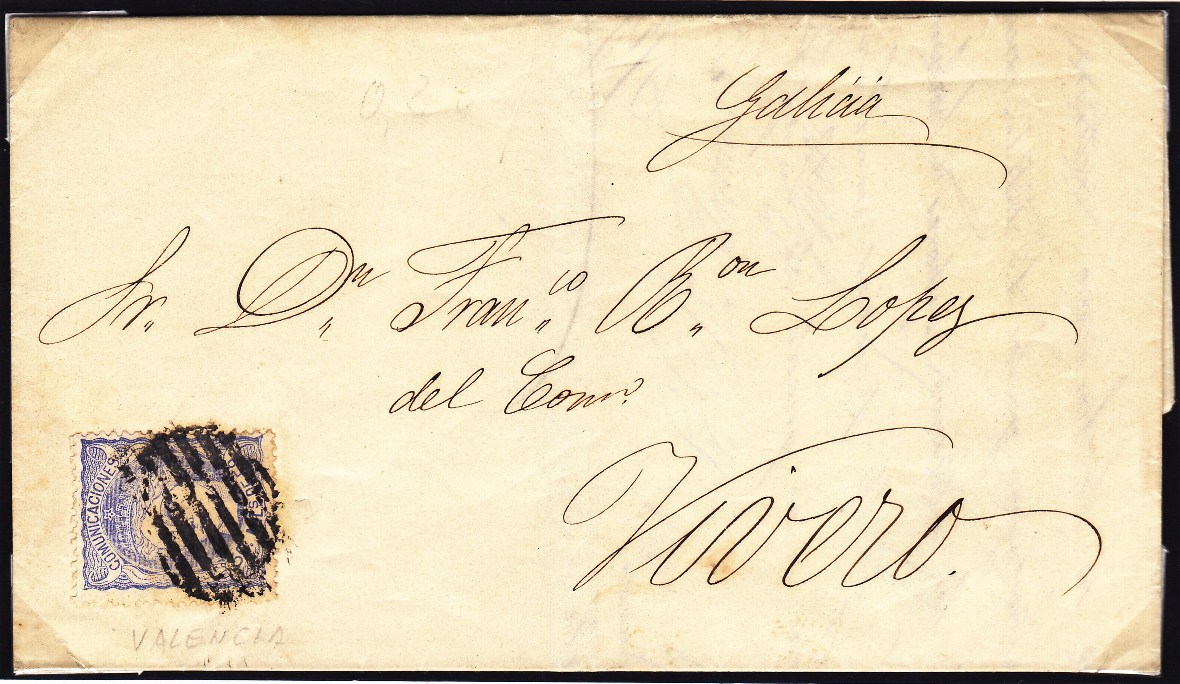 Galicia
Sr. Dn Franco Ron Lopez
del Comº.
Vivero.
COMUNICACIONES
VALENCIA